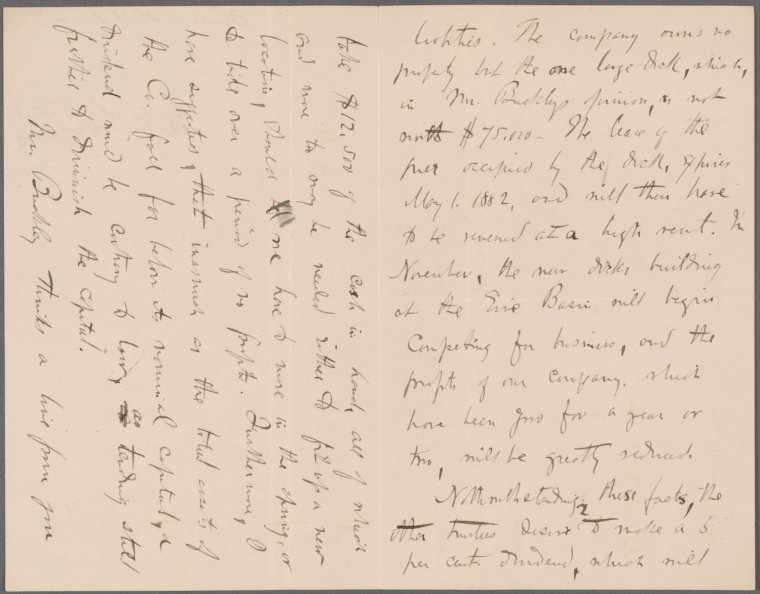 liabilities. The company owns no
property but the one large dock, which,
in Mr. Buckley's opinion, is not
worth $75,000. The lease of the
pier occupied by the dock, expires
May 1. 1882, and will then have
to be renewed at a high rent. In
November, the new docks building
at the Erie Basin will begin
competing for business, and the
profits of our company, which
have been for a year or
two, will be greatly reduced.
Notwithstanding these facts, the
other trustees desire to make a 5
per cent dividend, which will
take $12,500 of the cash in hand, all of which
and more too may be needed either to fit up a new
location, should we have to move in the spring, or
to tide over a period of no profits. Furthermore, I
have suggested, that inasmuch as the total assets of
the Co. fall far below its nominal capital, a
dividend must be contrary to law, as tending still
further to diminish the capital.
Mr. Buckley thinks a line from you